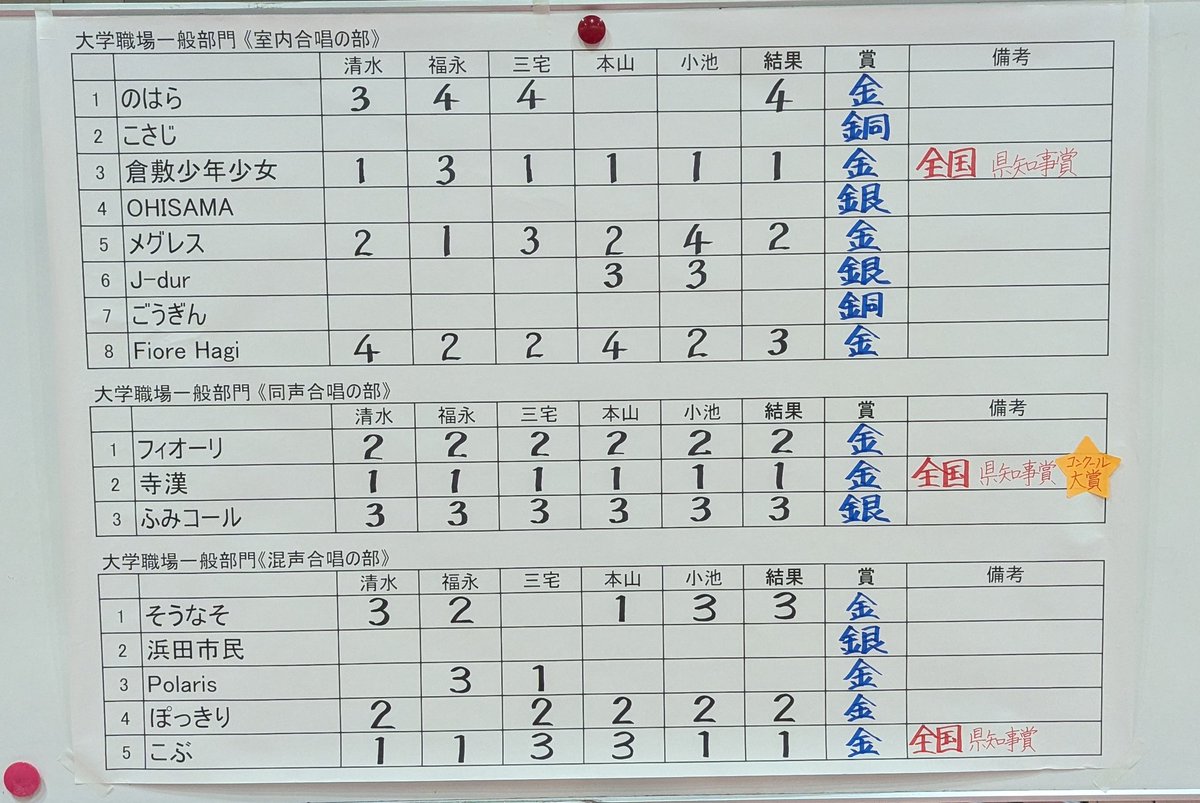 大学職場一般部門《室内合唱の部》
清水 福永 三宅 本山 小池 結果 賞 備考
1 のはら 3 4 4 4 金
2 こさじ 銅
3 倉敷少年少女 1 3 1 1 1 1 金 全国 県知事賞
4 OHISAMA 銀
5 メグレス 2 1 3 2 4 2 金
6 J-dur 3 3 銀
7 ごうぎん 銅
8 Fiore Hagi 4 2 2 4 2 3 金
大学職場一般部門《同声合唱の部》
清水 福永 三宅 本山 小池 結果 賞 備考
1 フィオーリ 2 2 2 2 2 2 金
2 寺漢 1 1 1 1 1 1 金 全国 県知事賞 コンクール大賞
3 ふみコール 3 3 3 3 3 3 銀
大学職場一般部門《混声合唱の部》
清水 福永 三宅 本山 小池 結果 賞 備考
1 そうなそ 3 2 1 3 3 金
2 浜田市民 銀
3 Polaris 3 1 金
4 ぽっきり 2 2 2 2 2 金
5 こぶ 1 1 3 3 1 1 金 全国 県知事賞